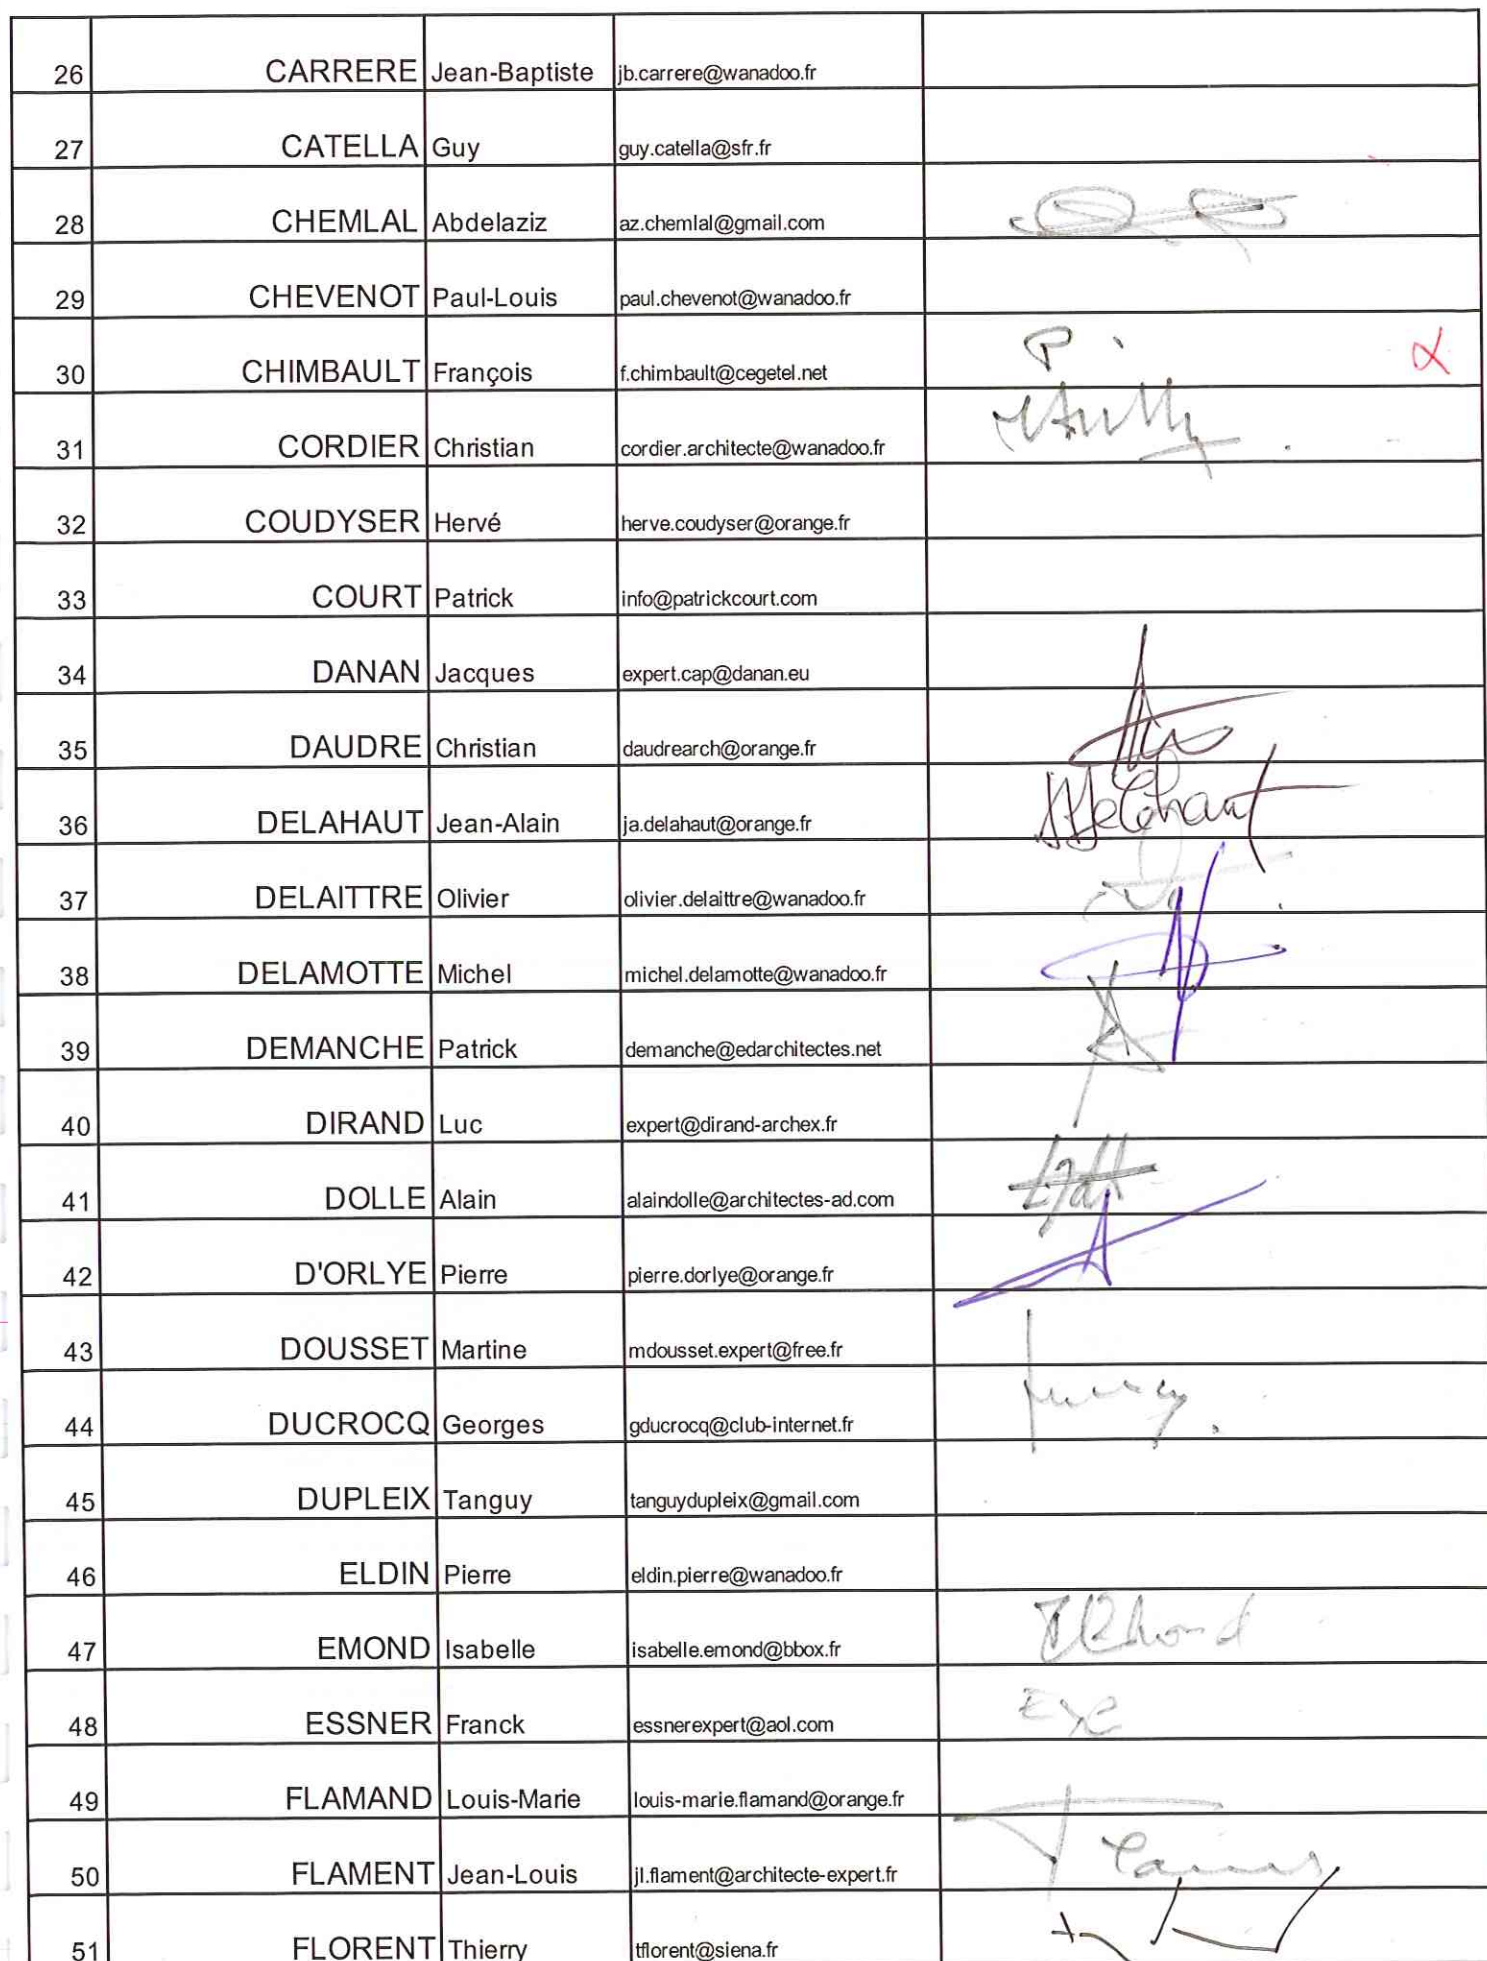 26 CARRERE Jean-Baptiste jb.carrere@wanadoo.fr
27 CATELLA Guy guy.catella@sfr.fr
28 CHEMLAL Abdelaziz az.chemlal@gmail.com
29 CHEVENOT Paul-Louis paul.chevenot@wanadoo.fr
30 CHIMBAULT François f.chimbault@cegetel.net
31 CORDIER Christian cordier.architecte@wanadoo.fr
32 COUDYSER Hervé herve.coudyser@orange.fr
33 COURT Patrick info@patrickcourt.com
34 DANAN Jacques expert.cap@danan.eu
35 DAUDRE Christian daudrearch@orange.fr
36 DELAHAUT Jean-Alain ja.delahaut@orange.fr
37 DELAITTRE Olivier olivier.delaittre@wanadoo.fr
38 DELAMOTTE Michel michel.delamotte@wanadoo.fr
39 DEMANCHE Patrick demanche@edarchitectes.net
40 DIRAND Luc expert@dirand-archex.fr
41 DOLLE Alain alaindolle@architectes-ad.com
42 D'ORLYE Pierre pierre.dorlye@orange.fr
43 DOUSSET Martine mdousset.expert@free.fr
44 DUCROCQ Georges gducrocq@club-internet.fr
45 DUPLEIX Tanguy tanguydupleix@gmail.com
46 ELDIN Pierre eldin.pierre@wanadoo.fr
47 EMOND Isabelle isabelle.emond@bbox.fr
48 ESSNER Franck essnerexpert@aol.com
49 FLAMAND Louis-Marie louis-marie.flamand@orange.fr
50 FLAMENT Jean-Louis jl.flament@architecte-expert.fr
51 FLORENT Thierry tflorent@siena.fr